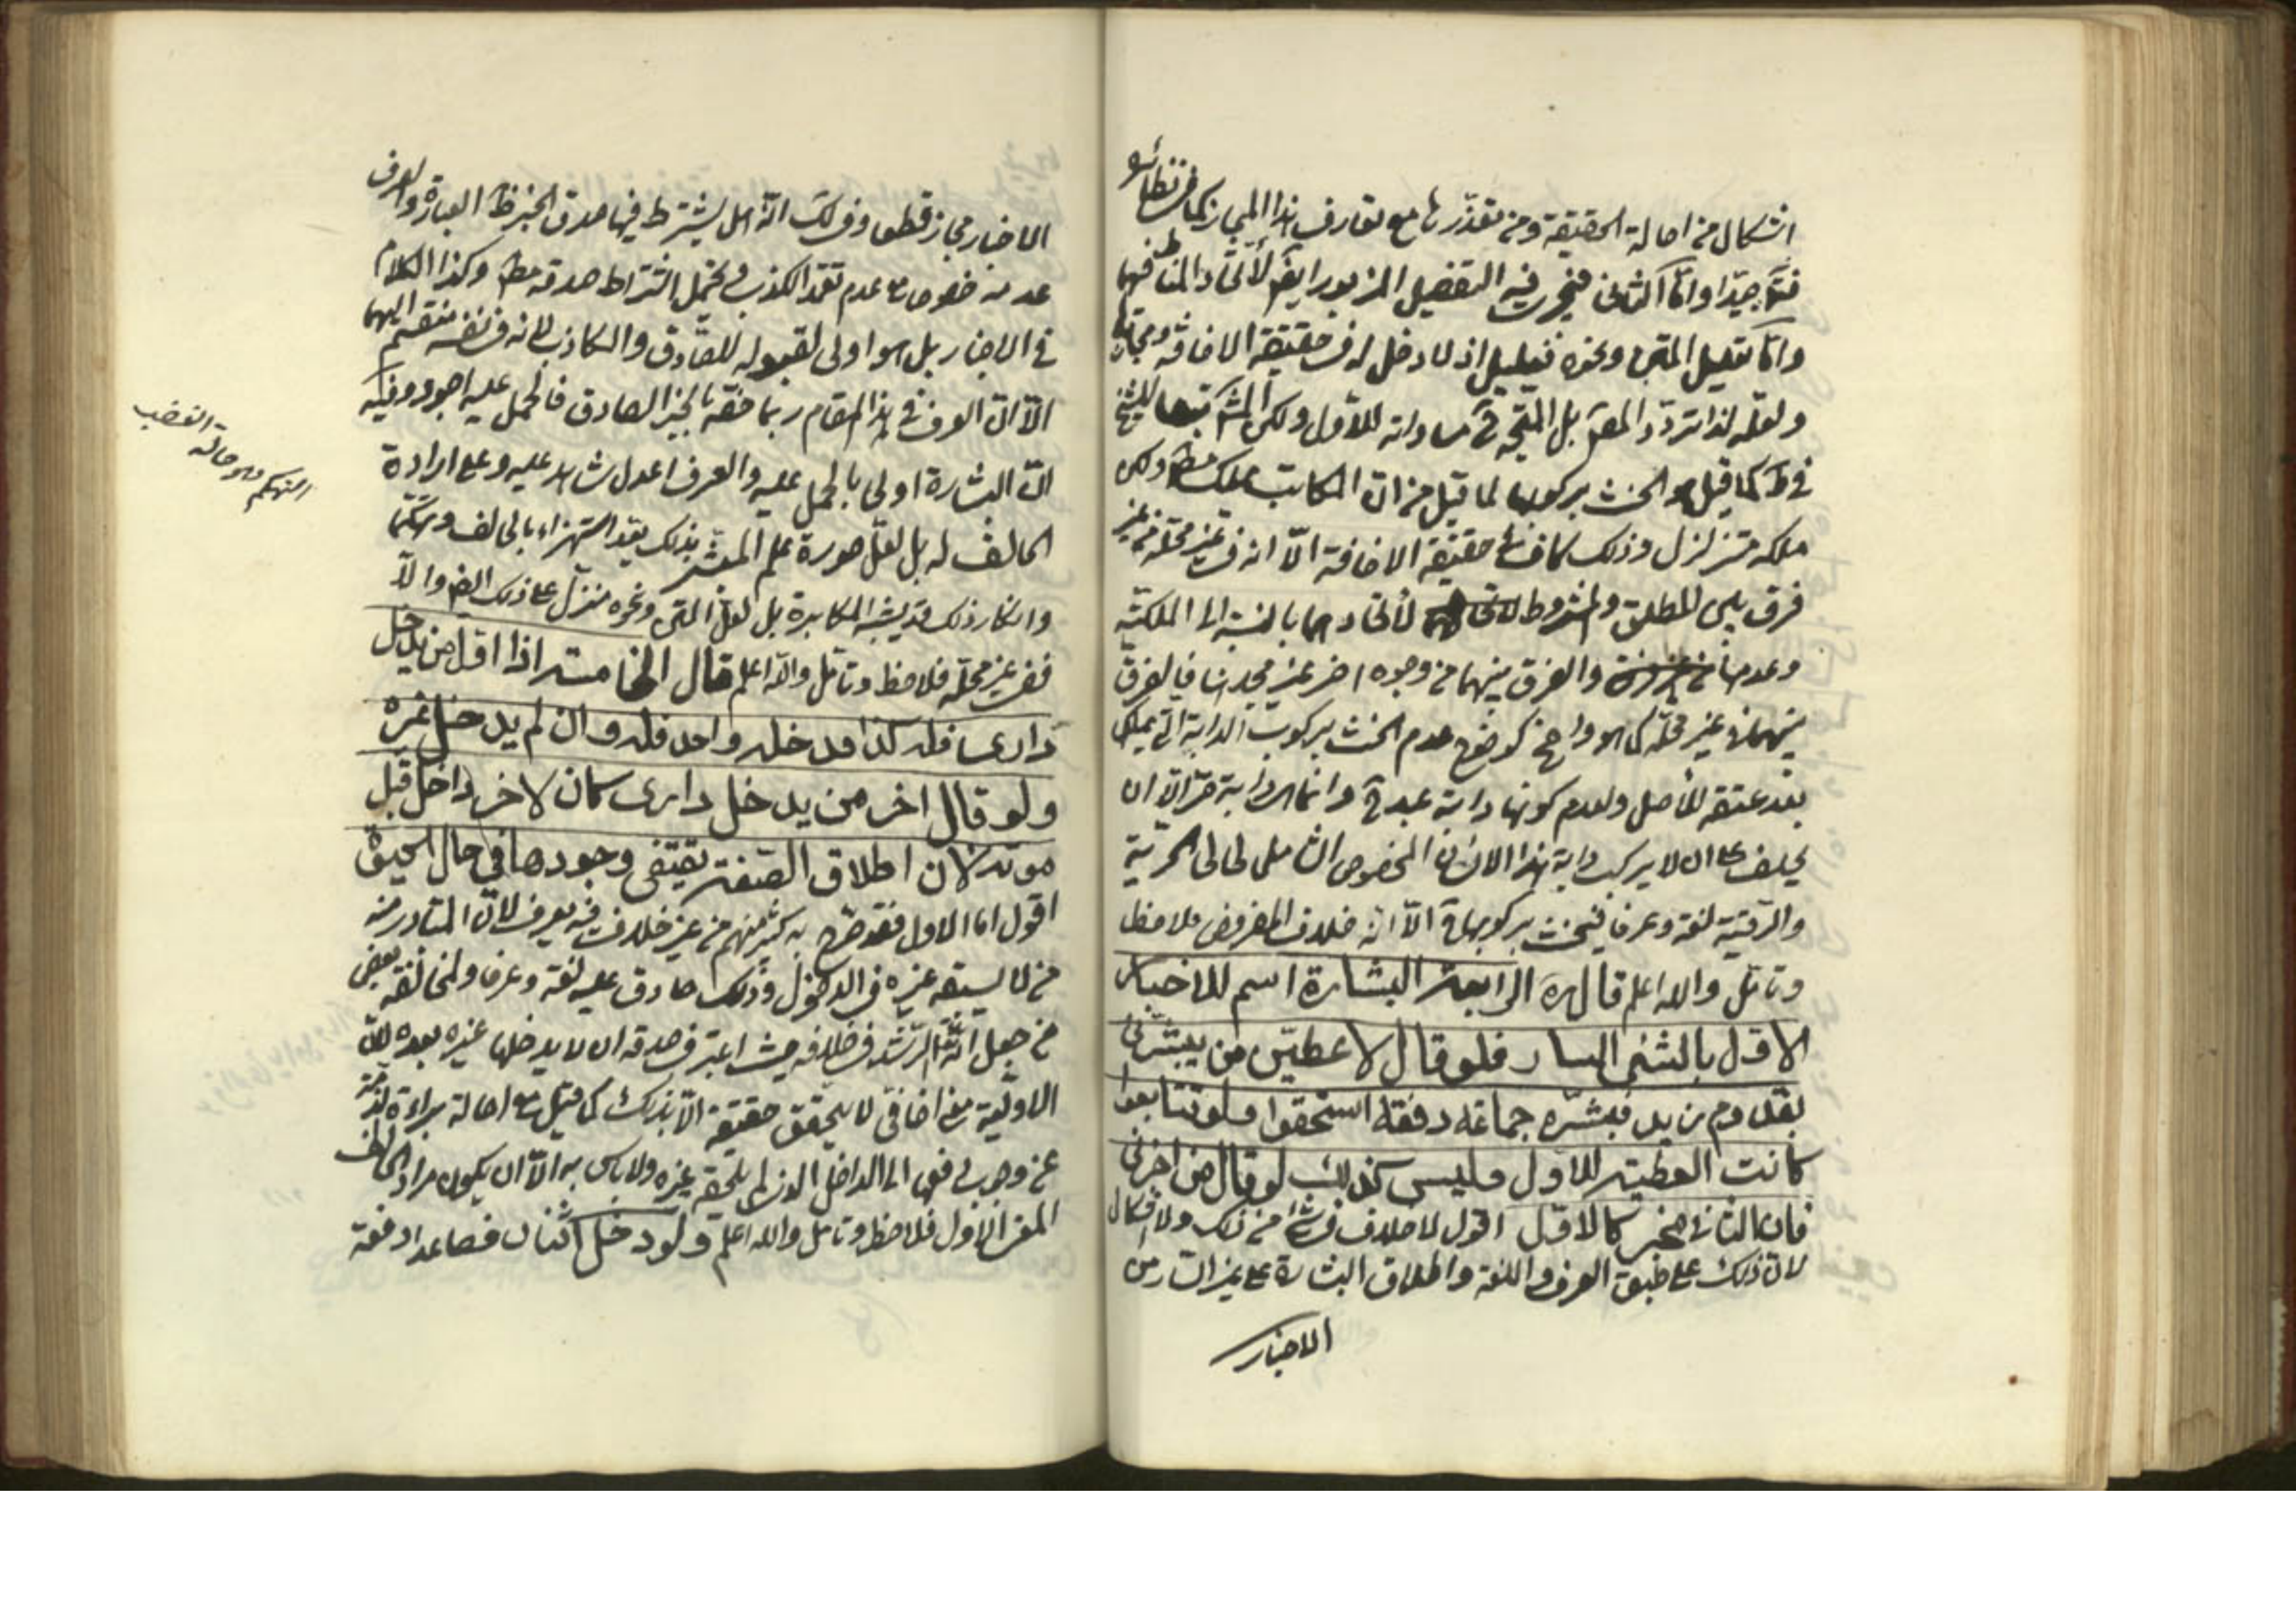 اشكال من اصالة الحقيقة ومن تعذّرها مع تعارف هذا المجاز كما في نظائره
جيّدا وامّا الثاني فيجري فيه التفصيل المزبور ايضا لاتّحاد المناط فيهما
وامّا تعليل المتن ونحوه فعليل اذ لا دخل له في حقيقة الاضافة ومجازها
ولعلّه لذا تردّد المص بل المتّجه مساواته للأول ولكن
كما قيل الحنث بركوبها لما قيل من ان المكاتب يملك ولكن
ملكه متزلزل وذلك كاف في حقيقة الاضافة الّا انه في غير محلّه من غير
فرق بين المطلق والمشروط لاتحادهما بالنسبة الى الملكيّة
وعدمها والفرق بينهما من وجوه اخر غير مجد هنا فالفرق
بينهما في غير محلّه كما هو واضح كوضوح عدم الحنث بركوب الدابة التي يملكها
بعد عتقه للأصل ولعدم كونها دابة عبد وانما هي دابة حرّ الّا ان
يحلف على ان لا يركب دابة هذا الانسان المخصوص الشامل لحالتي الحرّية
والرقّية لغة وعرفا فيحنث بركوبها الّا انّه خلاف المفروض فلاحظ
وتأمّل والله اعلم قال ره الرابعة البشارة اسم للاخبار
الاوّل بالشئ السار فلو قال لاعطينّ من يبشّرني
بقدوم زيد فبشّره جماعة دفعة استحقوا ولو تتابعوا
كانت العطية للاول وليس كذلك لو قال من اخبرني
فان الثاني مخبر كالاوّل اقول لا خلاف في شئ من ذلك ولا اشكال
لان ذلك على طبق العرف واللغة واطلاق البشارة على غير السار من
الاخبار
الاخبار مجاز قطعا وفي انّه هل يشترط فيها صدق الخبر ظ العبارة والعرف
عدمه خصوصا مع عدم تعمّد الكذب ويحتمل اشتراط صدقه وكذا الكلام
في الاخبار بل هو اولى لقبوله للصّادق والكاذب لانه في نفسه منقسم اليهما
الّا انّ العرف في هذا المقام ربما خصّه بالخبر الصادق فالحمل عليه اجود وفيه
انّ البشارة اولى بالحمل عليه والعرف اعدل شاهد عليه وعلى ارادة
المخالف له بل لعلّ صورة علم المبشّر بذلك يعد استهزاء بالمخالف وتهكّما
وانكار ذلك قد يشبه المكابرة بل لعلّ المتن ونحوه منزّل على ذلك والّا
ففي غير محلّه فلاحظ وتأمّل والله اعلم قال الخامسة اذا قال اول من يدخل
داري فله كذا فدخله واحد فله وان لم يدخل غيره
ولو قال اخر من يدخل داري كان لاخر داخل قبل
موته لان اطلاق الصّفة يقتضي وجودها في حال الحيوة
اقول اما الاول فقد صرّح به كثير منهم من غير خلاف فيه يعرف لانّ المتبادر منه
من لا يسبقه غيره في الدخول وذلك صادق عليه لغة وعرفا والمخالفة بعض
من جعل انّه الرشد في خلافه حيث اعتبر في صدقه ان لا يدخلها غيره بعده لانّ
الاوّلية معنى اضافي لا يتحقق حقيقة الّا بذلك كما قيل مع اصالة براءة الذمّة
عن وجوب دفعها الى الداخل الذي لم يلحقه غيره ولا بأس به الّا ان يكون مراد الحالف
المعنى الاول فلاحظ وتأمل والله اعلم ولو دخل اثنان فصاعدا دفعة
التهكم وهو حالة الغضب